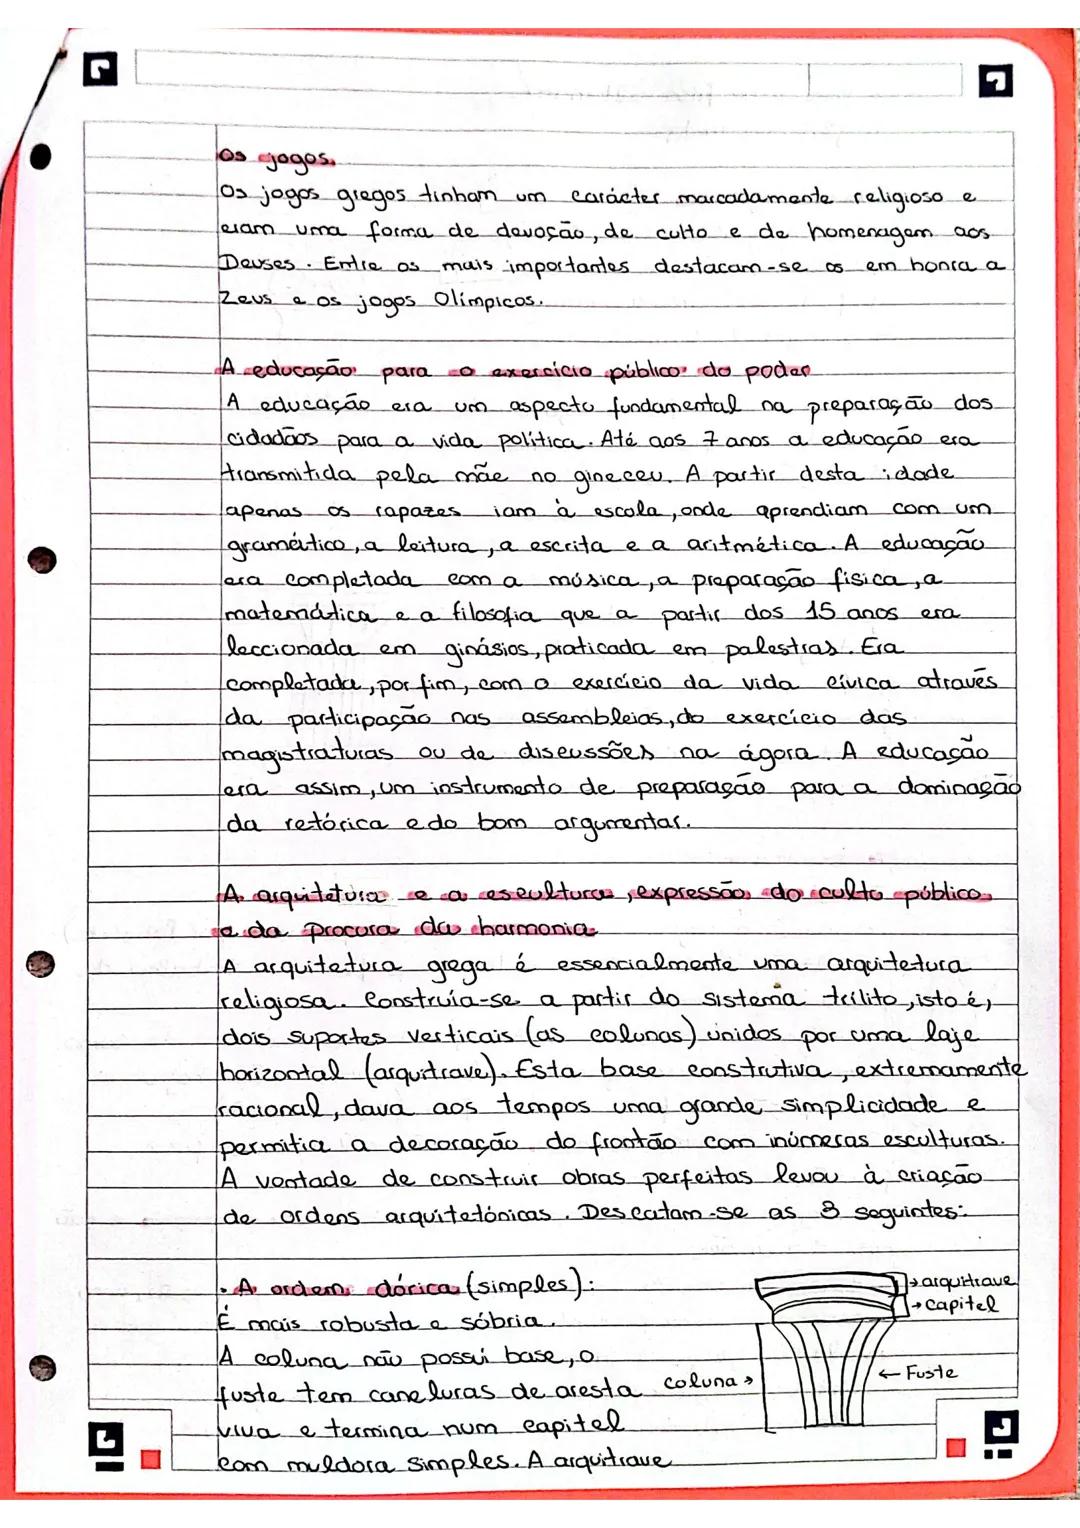 Os jogos.
Os jogos gregos tinham um carácter marcadamente religioso e
eram uma forma de devoção, de culto e de homenagem aos
Deuses. Entre os mais importantes destacam-se os em honra a
Zeus e os jogos Olímpicos.
A educação para o exercício público do poder
A educação era um aspecto fundamental na preparação dos
cidadãos para a vida política. Até aos 7 anos a educação era
transmitida pela mãe no gineceu. A partir desta idade
apenas os rapazes iam à escola, onde aprendiam com um
gramático, a leitura, a escrita e a aritmética. A educação
era completada com a música, a preparação física, a
matemática e a filosofia que a partir dos 15 anos era
leccionada em ginásios, praticada em palestras. Era
completada, por fim, com o exercício da vida cívica através
da participação nas assembleias, do exercício das
magistraturas ou de discussões na ágora. A educação
era assim, um instrumento de preparação para a dominação
da retórica e do bom argumentar.
A arquitetura e a escultura, expressão do culto público
e da procura da harmonia
A arquitetura grega é essencialmente uma arquitetura
religiosa. Construía-se a partir do sistema trílito, isto é,
dois suportes verticais (as colunas) unidos por uma laje
horizontal (arquitrave). Esta base construtiva, extremamente
racional, dava aos tempos uma grande simplicidade e
permitia a decoração do frontão com inúmeras esculturas.
A vontade de construir obras perfeitas levou à criação
de ordens arquitetónicas. Descatam-se as 3 seguintes:
· A ordem dórica (simples):
É mais robusta e sóbria.
A coluna não possui base, o
fuste tem caneluras de aresta
viva e termina num capitel
com muldora simples. A arquitrave
→ arquitrave
→ capitel
coluna →
← Fuste